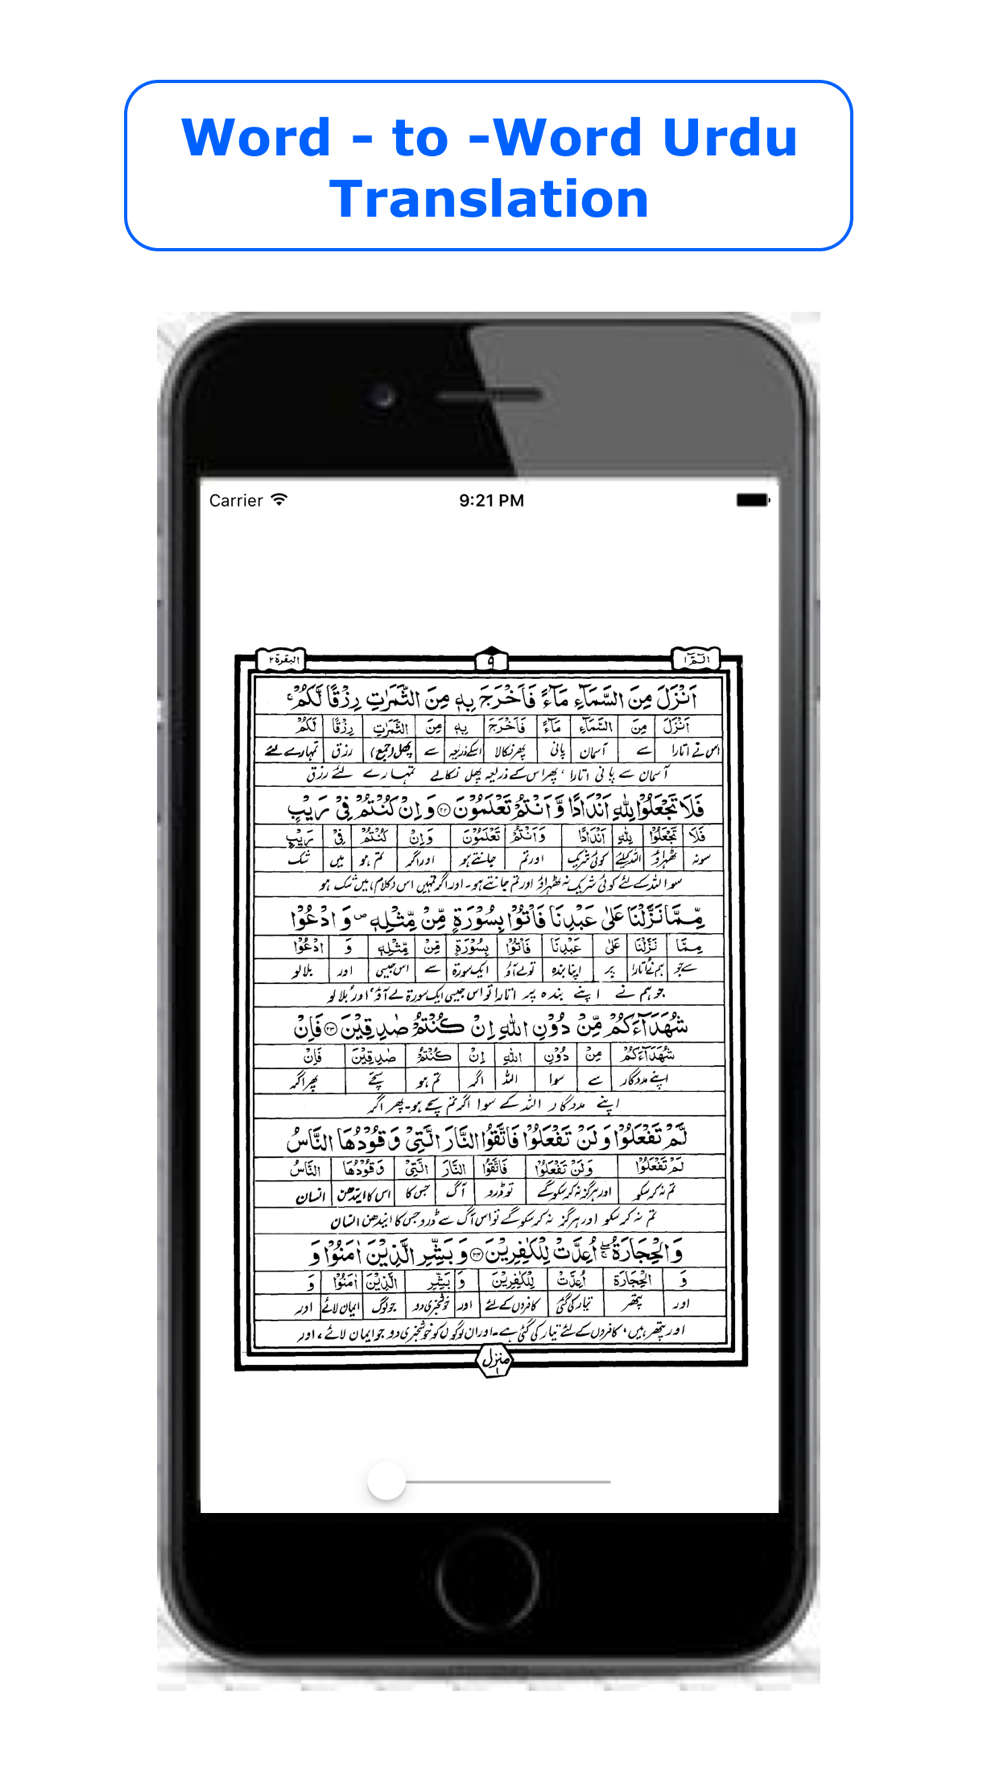 Word - to -Word Urdu
Translation
Carrier 9:21 PM
الٓمّٓ ١ ٩ البقرة ٢
اَنْزَلَ مِنَ السَّمَآءِ مَآءً فَاَخْرَجَ بِهٖ مِنَ الثَّمَرٰتِ رِزْقًا لَّكُمْ ۚ
اَنْزَلَ مِنَ السَّمَآءِ مَآءً فَاَخْرَجَ بِهٖ مِنَ الثَّمَرٰتِ رِزْقًا لَّكُمْ
اس نے اتارا سے آسمان پانی پھر نکالا اسکے ذریعہ سے پھل (جمع) رزق تمہارے لئے
آسمان سے پانی اتارا ، پھر اس کے ذریعہ پھل نکالے تمہارے لئے رزق
فَلَا تَجْعَلُوْا لِلّٰهِ اَنْدَادًا وَّ اَنْتُمْ تَعْلَمُوْنَ ﴿٢٢﴾ وَ اِنْ كُنْتُمْ فِیْ رَیْبٍ
فَلَا تَجْعَلُوْا لِلّٰهِ اَنْدَادًا وَ اَنْتُمْ تَعْلَمُوْنَ وَ اِنْ كُنْتُمْ فِیْ رَیْبٍ
سو نہ ٹھہراؤ اللہ کیلئے کوئی شریک اور تم جانتے ہو اور اگر تم ہو میں شک
سو اللہ کے لئے کوئی شریک نہ ٹھہراؤ اور تم جانتے ہو۔ اور اگر تمہیں اس (کلام) میں شک ہو
مِّمَّا نَزَّلْنَا عَلٰی عَبْدِنَا فَاْتُوْا بِسُوْرَةٍ مِّنْ مِّثْلِهٖ ۪ وَ ادْعُوْا
مِّمَّا نَزَّلْنَا عَلٰی عَبْدِنَا فَاْتُوْا بِسُوْرَةٍ مِّنْ مِّثْلِهٖ وَ ادْعُوْا
سے جو ہم نے اتارا پر اپنا بندہ تو لے آؤ ایک سورۃ سے اس جیسی اور بلا لو
جو ہم نے اپنے بندہ پر اتارا تو اس جیسی ایک سورۃ لے آؤ ، اور بلا لو
شُهَدَآءَكُمْ مِّنْ دُوْنِ اللّٰهِ اِنْ كُنْتُمْ صٰدِقِیْنَ ﴿٢٣﴾ فَاِنْ
شُهَدَآءَكُمْ مِنْ دُوْنِ اللّٰهِ اِنْ كُنْتُمْ صٰدِقِیْنَ فَاِنْ
اپنے مددگار سے سوا اللہ اگر تم ہو سچّے پھر اگر
اپنے مددگار اللہ کے سوا اگر تم سچے ہو۔ پھر اگر
لَّمْ تَفْعَلُوْا وَ لَنْ تَفْعَلُوْا فَاتَّقُوا النَّارَ الَّتِیْ وَقُوْدُهَا النَّاسُ
لَمْ تَفْعَلُوْا وَ لَنْ تَفْعَلُوْا فَاتَّقُوا النَّارَ الَّتِیْ وَقُوْدُهَا النَّاسُ
تم نہ کر سکو اور ہرگز نہ کر سکو گے تو ڈرو آگ جس کا اس کا ایندھن انسان
تم نہ کر سکو اور ہرگز نہ کر سکو گے تو اس آگ سے ڈرو جس کا ایندھن انسان
وَ الْحِجَارَةُ ۖۚ اُعِدَّتْ لِلْكٰفِرِیْنَ ﴿٢٤﴾ وَ بَشِّرِ الَّذِیْنَ اٰمَنُوْا وَ
وَ الْحِجَارَةُ اُعِدَّتْ لِلْكٰفِرِیْنَ وَ بَشِّرِ الَّذِیْنَ اٰمَنُوْا وَ
اور پتھر تیار کی گئی کافروں کے لئے اور خوشخبری دو جو لوگ ایمان لائے اور
اور پتھر ہیں ، کافروں کے لئے تیار کی گئی ہے۔ اور ان لوگوں کو خوشخبری دو جو ایمان لائے ، اور
منزل ١